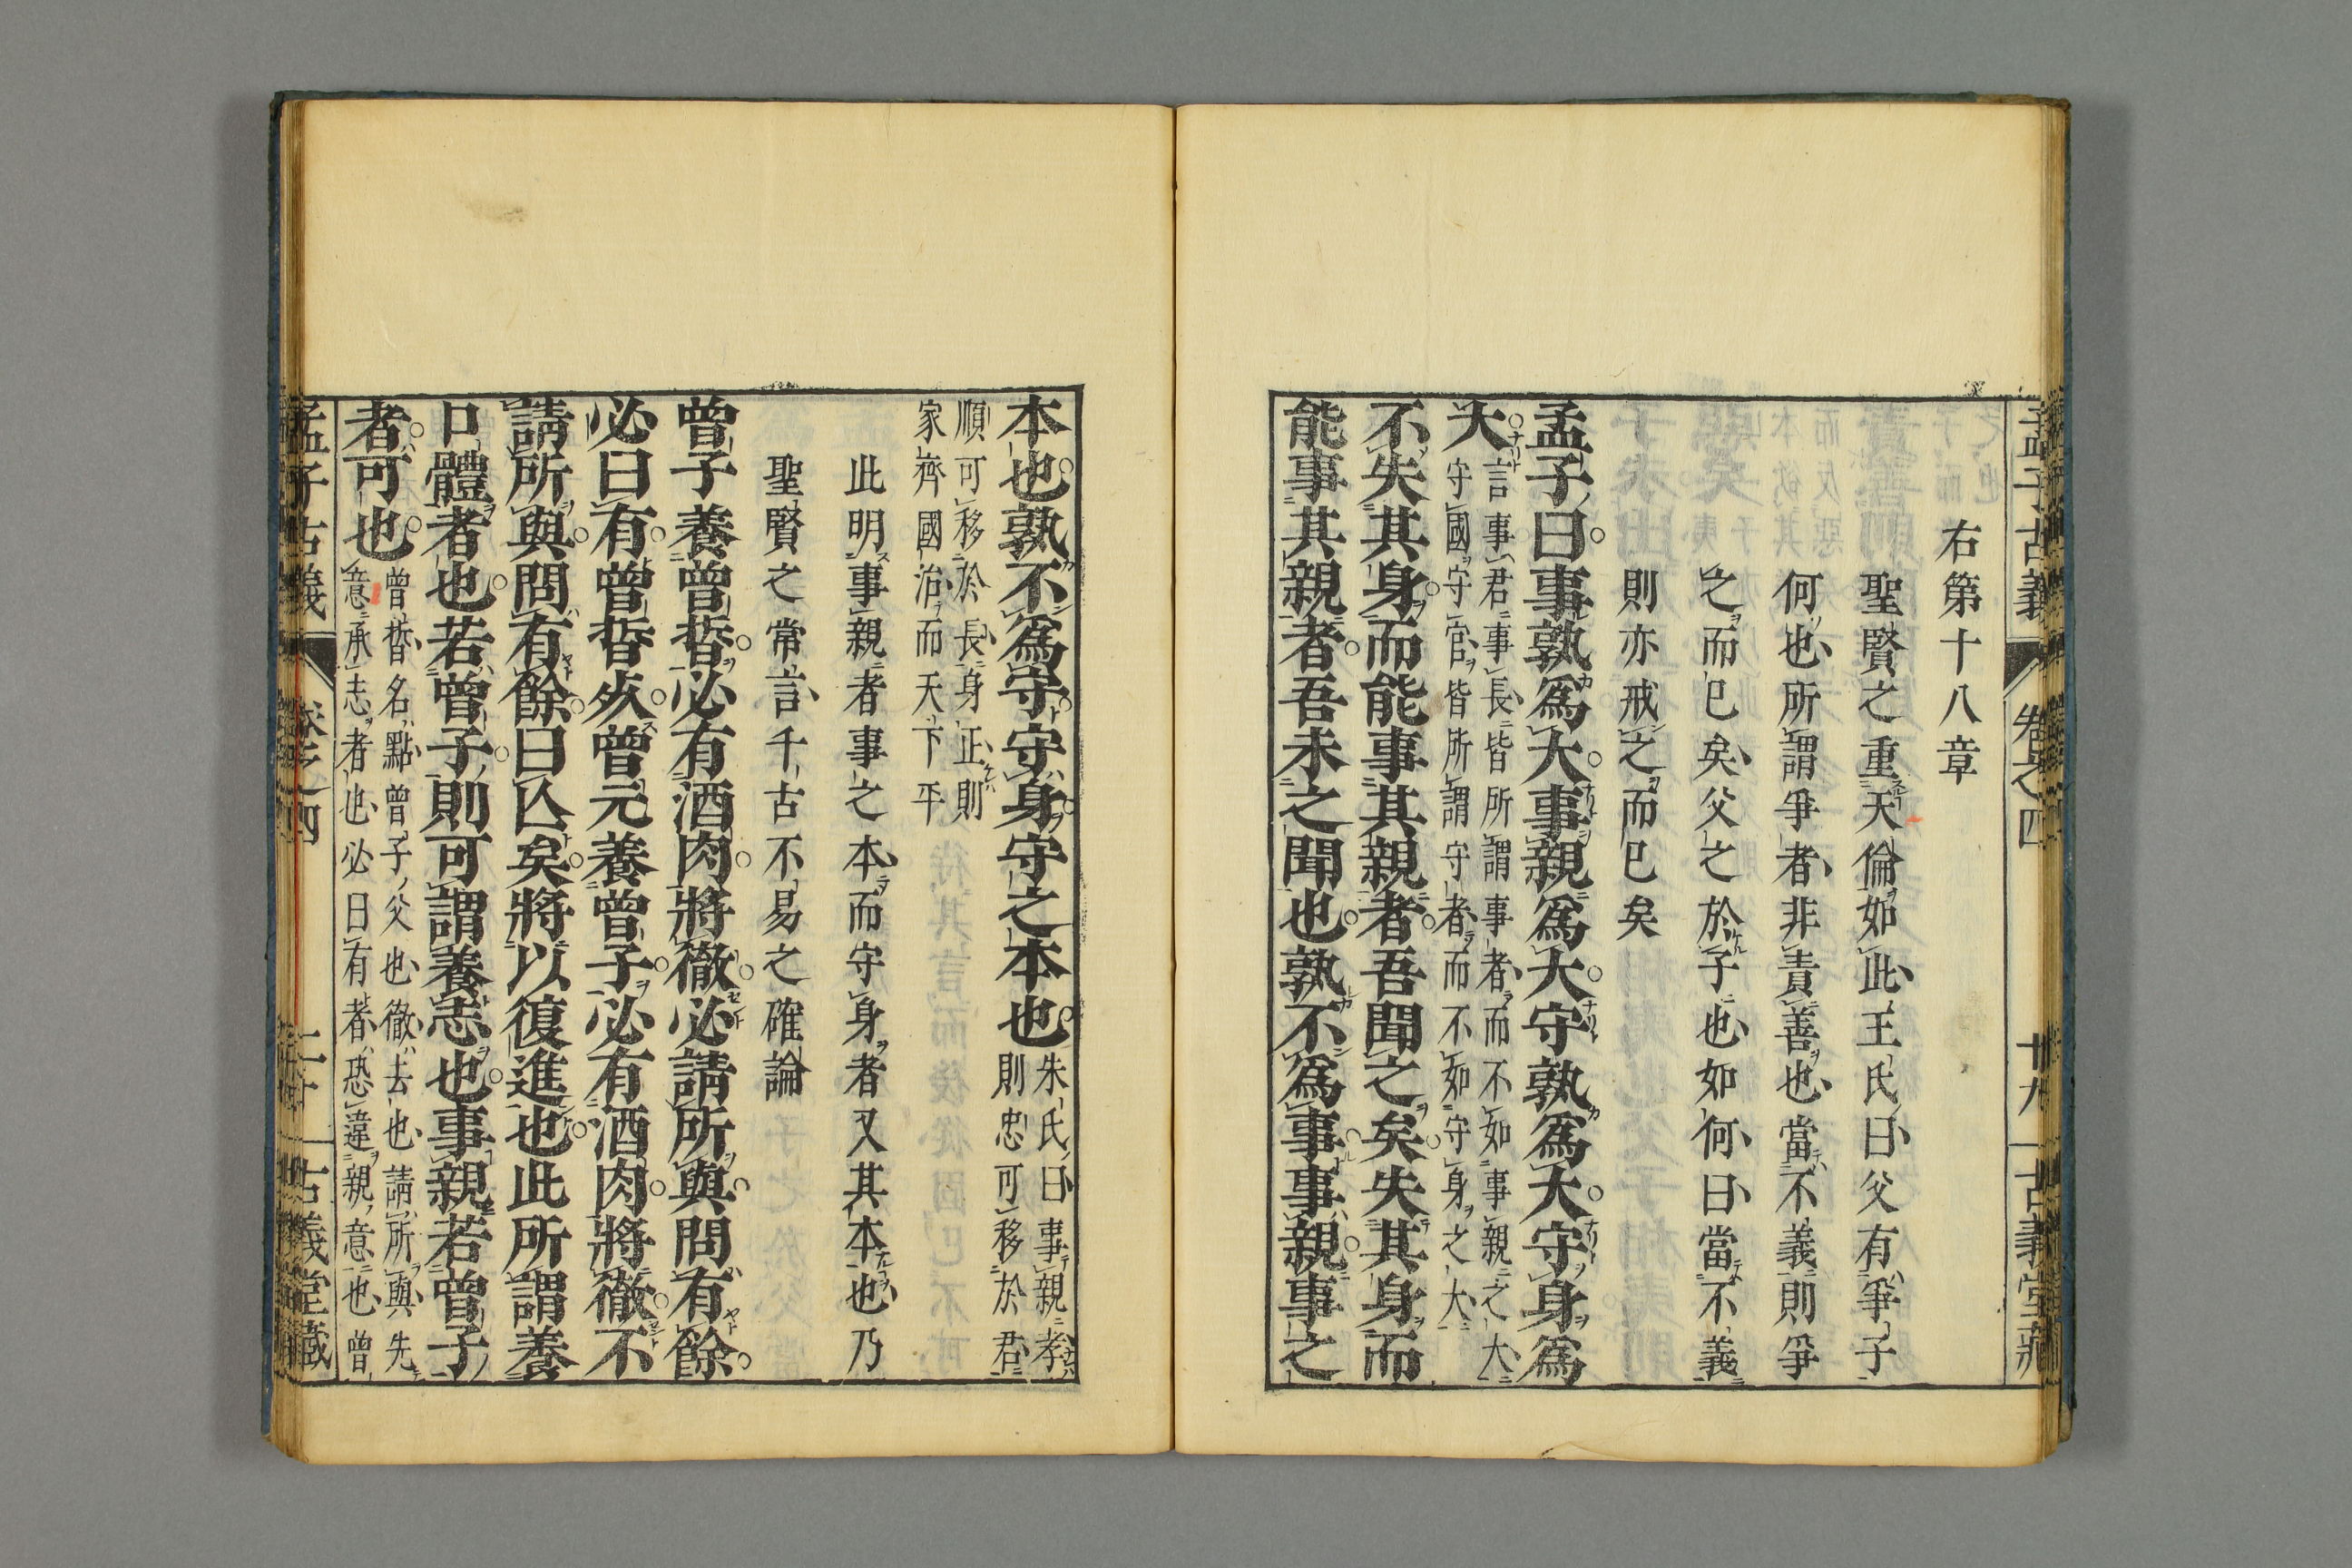 右第十八章
聖賢之重天倫如此王氏曰父有爭子
何也所謂爭者非責善也當不義則爭
之而已矣父之於子也如何曰當不義
則亦戒之而已矣
孟子曰事孰爲大事親爲大守孰爲大守身爲
大
言事君事長皆所謂事者而不如事親之大
守國守官皆所謂守者而不如守身之大
不失其身而能事其親者吾聞之矣失其身而
能事其親者吾未之聞也孰不爲事事親事之
本也孰不爲守守身守之本也
朱氏曰事親孝
則忠可移於君
順可移於長身正則
家齊國治而天下平
此明事親者事之本而守身者又其本也乃
聖賢之常言千古不易之確論
曾子養曾晳必有酒肉將徹必請所與問有餘
必曰有曾晳死曾元養曾子必有酒肉將徹不
請所與問有餘曰亾矣將以復進也此所謂養
口體者也若曾子則可謂養志也事親若曾子
者可也
曾晳名點曾子父也徹去也請所與先
意承志者也必曰有者恐違親意也曾
孟子古義 卷之四 古義堂藏